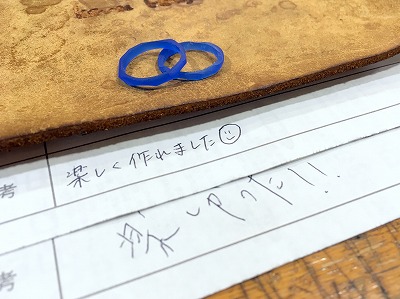 考 楽しく作れました☺
考 楽しかった!!